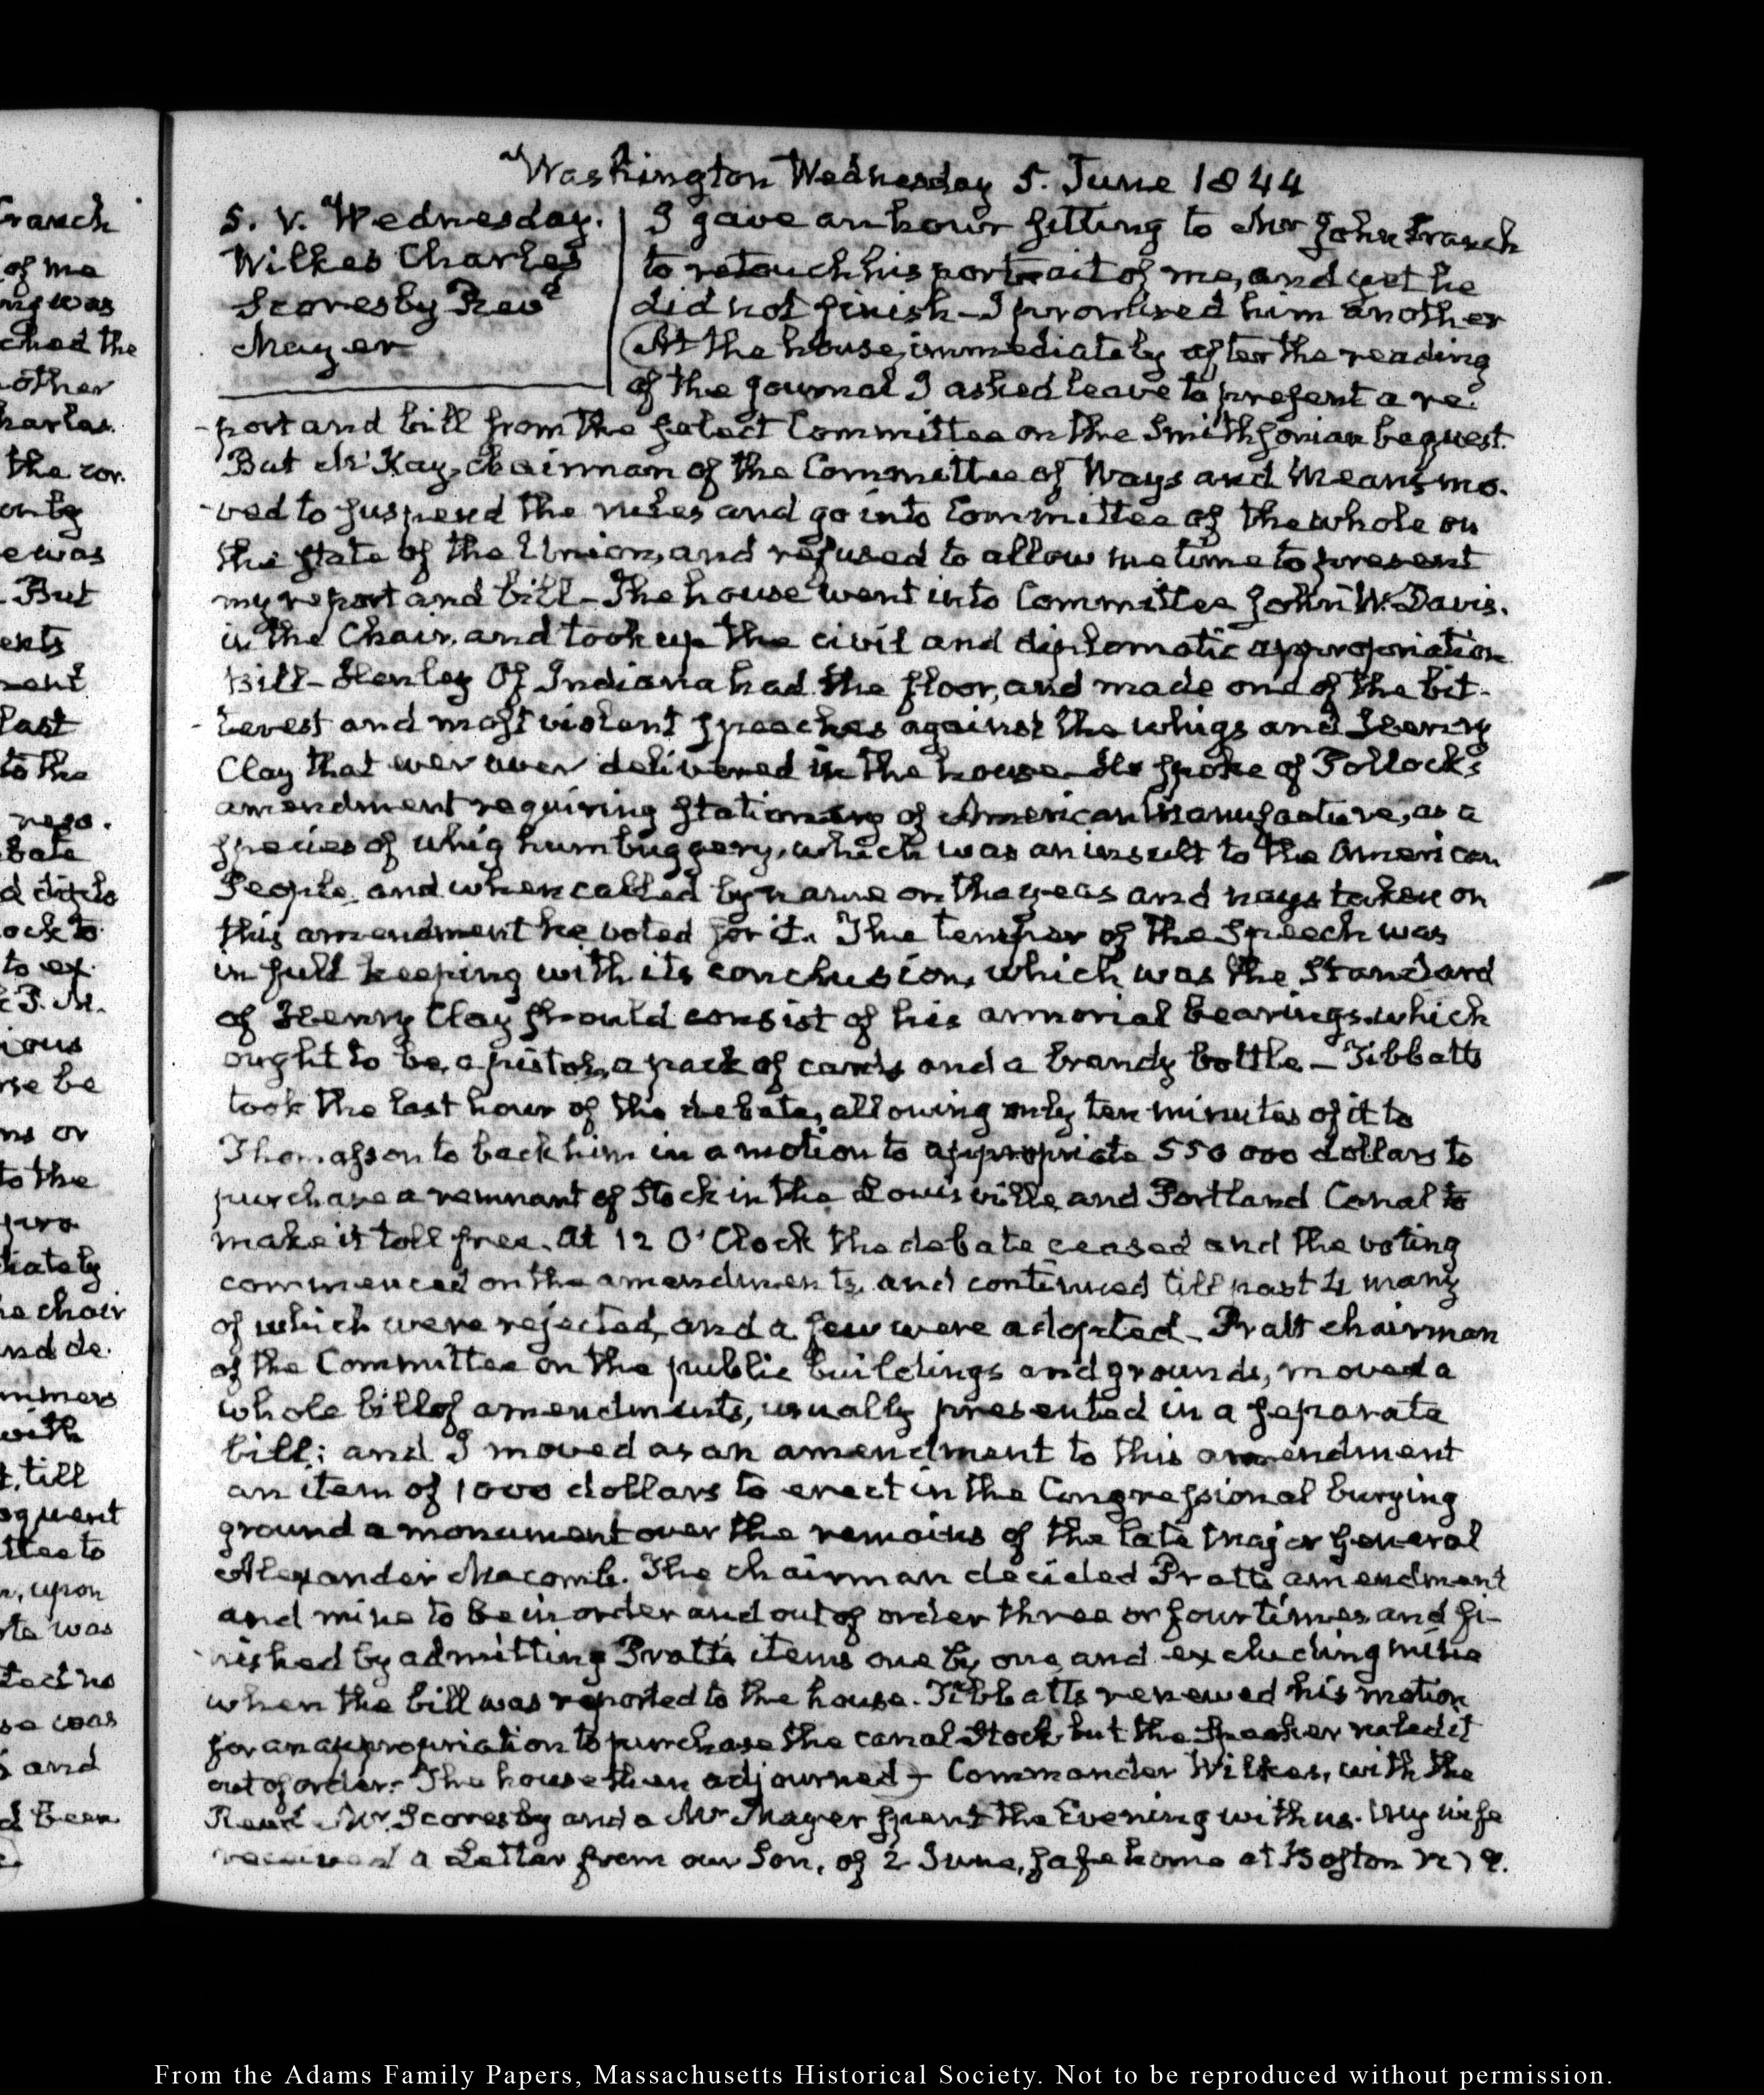 Washington Wednesday 5. June 1844
5. V. Wednesday.
Wilkes Charles
Scoresby Revd
Mayer
I gave an hour sitting to Mr John Cranch
to retouch his portrait of me, and yet he
did not finish—I promised him another
At the house, immediately after the reading
of the journal I asked leave to present a re-
-port and bill from the select Committee on the Smithsonian bequest.
But McKay, chairman of the Committee of Ways and Means mo-
-ved to suspend the rules and go into Committee of the whole on
the state of the Union, and refused to allow me time to present
my report and bill—The house went into Committee John W. Davis.
in the Chair, and took up the civil and diplomatic appropriation
bill—Henley of Indiana had the floor, and made one of the bit-
-terest and most violent speeches against the whigs and Henry
Clay that ever was delivered in the house—He spoke of Pollock's
amendment requiring stationary of American Manufacture, as a
species of whig humbuggery, which was an insult to the American
People, and when called by name on the yeas and nays taken on
this amendment he voted for it. The temper of the Speech was
in full keeping with its conclusion, which was the Standard
of Henry Clay should consist of his armorial bearings, which
ought to be, a pistol, a pack of cards and a brandy bottle—Tibbatts
took the last hour of the debate, allowing only ten minutes of it to
Thomasson to back him in a motion to appropriate 550 000 dollars to
purchase a remnant of Stock in the Louisville and Portland Canal to
make it toll free. At 12 O'Clock the debate ceased and the voting
commenced on the amendments, and continued till past 4 many
of which were rejected, and a few were adopted—Pratt chairman
of the Committee on the public buildings and grounds, moved a
whole bill of amendments, usually presented in a separate
bill; and I moved as an amendment to this amendment
an item of 1000 dollars to erect in the Congressional burying
ground a monument over the remains of the late Major General
Alexander Macomb. The chairman decided Pratt's amendment
and mine to be in order and out of order three or four times and fi-
-nished by admitting Pratt's items one by one, and excluding mine
when the bill was reported to the house. Tibbatts renewed his motion
for an appropriation to purchase the canal Stock but the Speaker ruled it
out of order.—The house then adjourned—Commander Wilkes, with the
Revd Mr Scoresby and a Mr Mayer spent the Evening with us. My wife
received a Letter from our Son, of 2 June, safe home at Boston
From the Adams Family Papers, Massachusetts Historical Society. Not to be reproduced without permission.